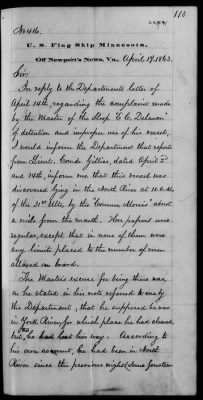 110
No 416.
U. S. Flag Ship Minnesota,
Off Newport's News, Va., April 17, 1863.
Sir:
In reply to the Department's letter of
April 14th, regarding the complaint made
by the Master of the Sloop "E. C. Delavan"
of detention and improper use of his vessel,
I would inform the Department that reports
from Lieut. Comdr. Gillis, dated April 2d
and 14th, inform me that this vessel was
discovered lying in the North River at 10 a.m.
of the 31st Ulto, by the "Commo. Morris" about
a mile from the mouth. Her papers were
regular, except that in none of them were
any limits placed to the number of men
allowed on board.
The Master's excuse for being there was,
as he stated in his note referred to me by
the Department, that he supposed he was
in York River, for which place he had cleared,
but, he had lost his way. According to
his own account, he had been in North
River since the previous night, some fourteen